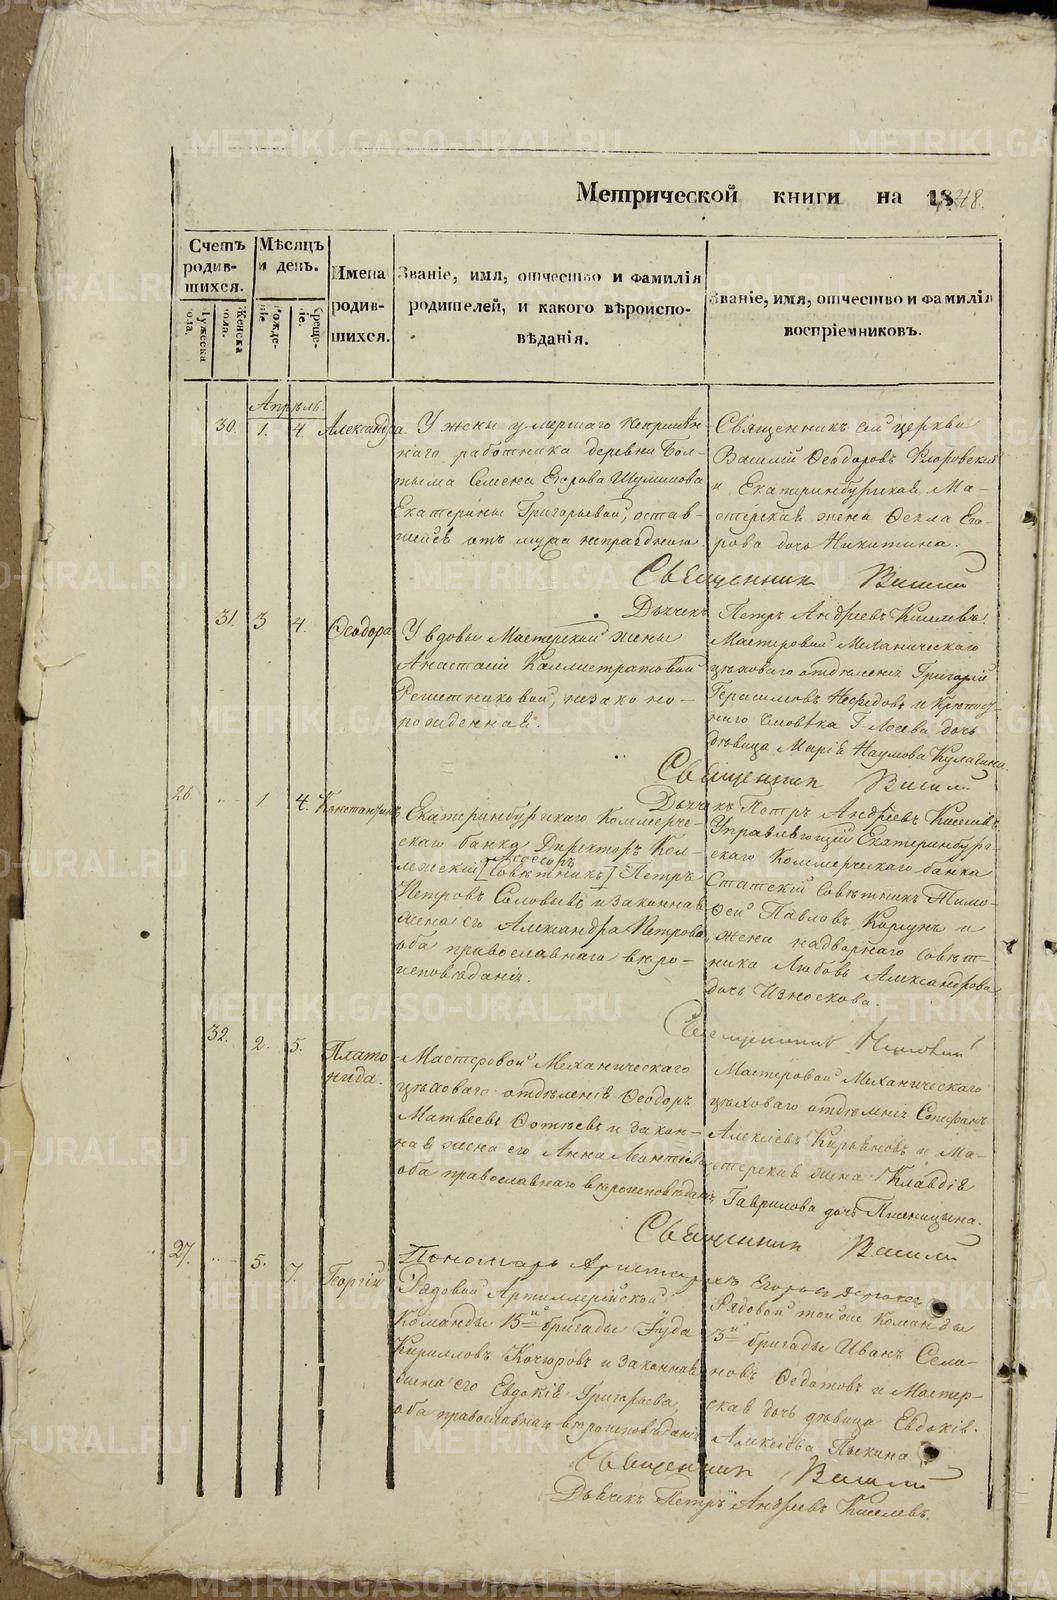 Метрической книги на 1848.
Счетъ родив-шихся.
Мѣсяцъ и день.
Имена родив-шихся.
Званіе, имя, отчество и фамилія
родителей, и какого вѣроиспо-
вѣданія.
Званіе, имя, отчество и фамилія
воспріемниковъ.
Мужеска пола.
Женска пола.
Рожде-ніе.
Креще-ніе.
Апрѣль
30. 1. 4. Александра.
У жены умершаго
наго работника деревни Бол-
тыма Семена Егорова Шумилова
Екатерины Григорьевой, остав-
шейся отъ мужа непраздною.
Священникъ сей церкви
Василій Ѳеодоровъ Флоровскій
и Екатеринбургская Ма-
стерская жена Ѳекла Его-
рова дочь Никитина.
Священник Василій
Дьячекъ Петръ Андреевъ Киселевъ.
31 3 4. Ѳеодора
У вдовы Мастерской жены
Анастасіи Каллистратовой
Решетниковой, незаконо-
рожденная.
Мастеровой Механическаго
цѣховаго отдѣленія Григорій
Герасимовъ Нефедовъ и Крѣпост-
наго человѣка Г. Лосева дочь
дѣвица Марія Наумова Кулагина.
Священник Василій
Дьячекъ Петръ Андреевъ Киселевъ
26. 1 4. Константинъ
Екатеринбургскаго Коммерче-
скаго банка Директоръ Кол-
лежскій [Совѣтникъ] Петръ
Ассесоръ
Петровъ Соловьевъ и законная
жена его Александра Петрова,
оба православнаго вѣро-
исповѣданія.
Управляющій Екатеринбург-
скаго Коммерческаго банка
Статскій Совѣтникъ Тимо-
ѳей Павловъ и
жена надворнаго Совѣт-
ника Любовь Александрова
дочь Износкова.
Священникъ
32. 2. 5. Плато
нида.
Мастеровой Механическаго
цѣховаго отдѣленія Ѳеодоръ
Матвеевъ Ѳотѣевъ и закон-
ная жена его Анна Леонтьева
оба православнаго вѣроисповѣданія
Мастеровой Механическаго
цѣховаго отдѣленія Стефанъ
Алексіевъ Кирьяновъ и Ма-
стерская жена Клавдія
Гаврилова дочь Пшеницына.
Священник Василій
Пономарь Аристархъ Егоровъ
27. 5. 7. Георгій
Рядовой Артиллерійской
Команды 15й бригады Іуда
Кирилловъ Кочуровъ и законная
жена его Евдокія Григорьева,
оба православнаго вѣроисповѣданія
Рядовой той же Команды
3й бригады Иванъ Семе-
новъ Ѳедотовъ и Мастер-
ская дочь дѣвица Евдокія
Алексіева Пыжина
Священник Василій
Дьячекъ Петръ Андреевъ Киселевъ.
METRIKI.GASO-URAL.RU